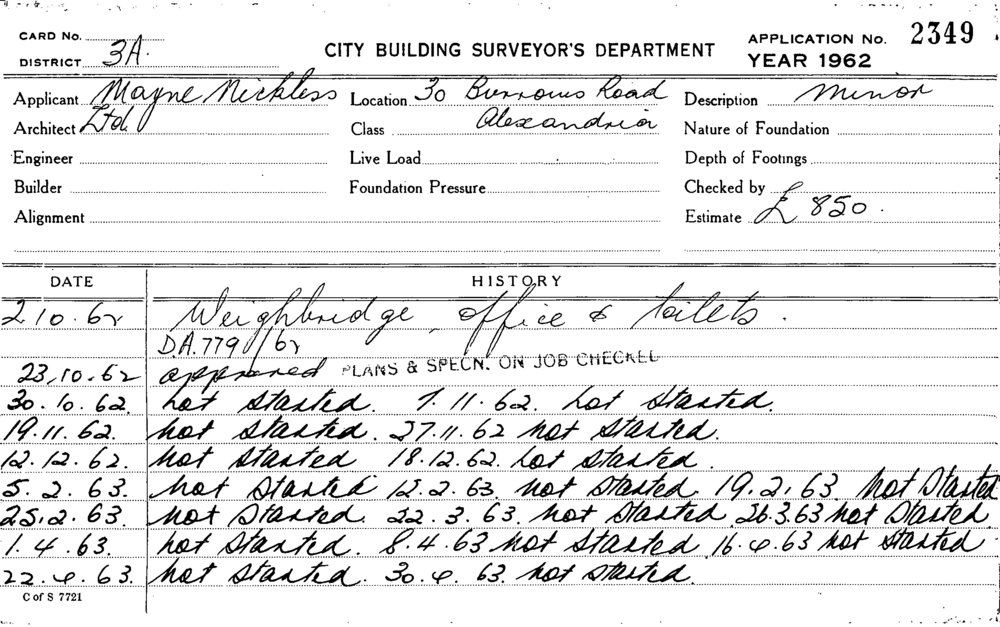 CARD No.
DISTRICT 3A.
CITY BUILDING SURVEYOR'S DEPARTMENT
APPLICATION No. 2349
YEAR 1962
Applicant Mayne Nickless Location 30 Burrows Road Description Minor
Architect Ltd. Class Alexandria Nature of Foundation
Engineer Live Load Depth of Footings
Builder Foundation Pressure Checked by
Alignment Estimate £ 850.
DATE HISTORY
2.10.62 Weighbridge, office & toilets.
D.A. 779/62
23.10.62 approved PLANS & SPECN. ON JOB CHECKED
30.10.62. not started. 7.11.62. not started.
19.11.62. not started. 27.11.62 not started.
12.12.62. not started 18.12.62. not started.
5.2.63. not started 12.2.63. not started. 19.2.63. Not Started
25.2.63. not started. 22.3.63. not started 26.3.63 not started
1.4.63. not started. 8.4.63 not started 16.4.63 not started
22.4.63. not started. 30.4.63. not started.
C of S 7721